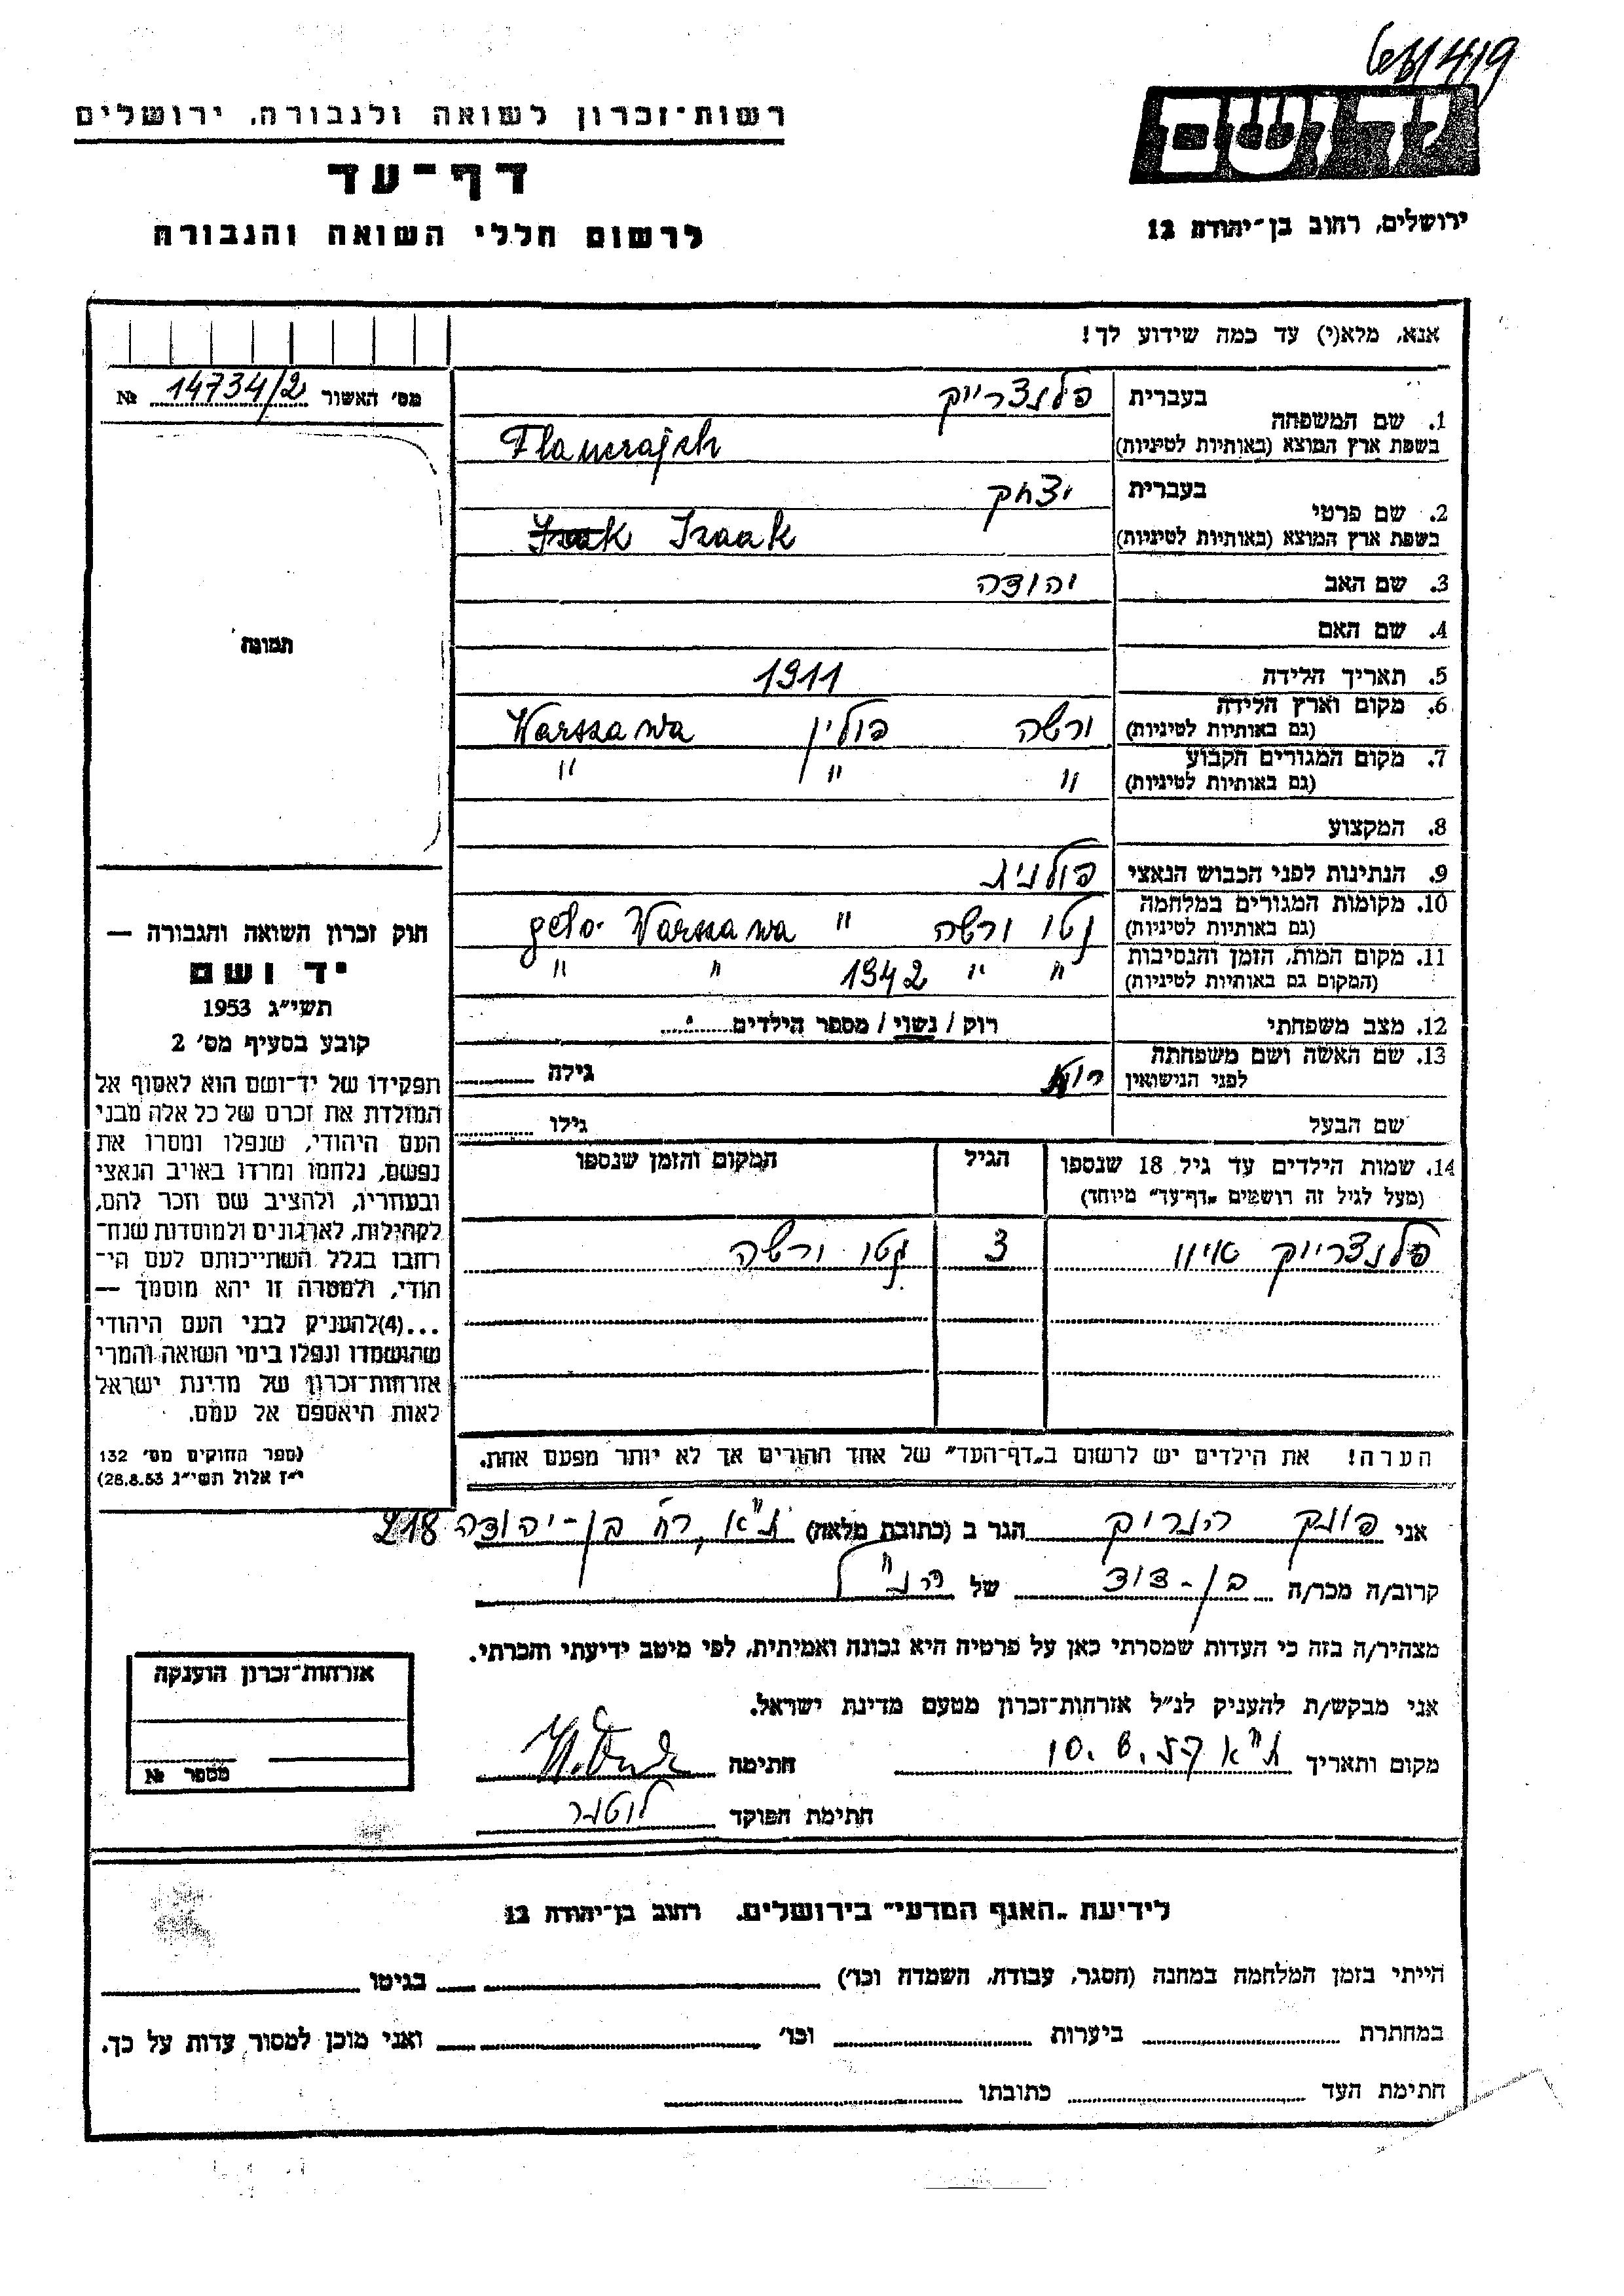 רשות־זכרון לשואה ולגבורה, ירושלים
דף־עד
לרשום חללי השואה והגבורה
יד ושם
ירושלים, רחוב בן־יהודה 12
אנא, מלא(י) עד כמה שידוע לך!
מס' האשור 14734/2 №
תמונה
1. שם המשפחה בעברית פלנצרייך
בשפת ארץ המוצא (באותיות לטיניות) Flancrajch
2. שם פרטי בעברית יצחק
בשפת ארץ המוצא (באותיות לטיניות) Izaak
3. שם האב יהודה
4. שם האם
5. תאריך הלידה 1911
6. מקום וארץ הלידה ורשה פולין Warszawa
(גם באותיות לטיניות)
7. מקום המגורים הקבוע " " "
(גם באותיות לטיניות)
8. המקצוע
9. הנתינות לפני הכבוש הנאצי פולנית
10. מקומות המגורים במלחמה גטו ורשה " geto Warszawa
(גם באותיות לטיניות)
11. מקום המות, הזמן והנסיבות " " 1942 " "
(המקום גם באותיות לטיניות)
12. מצב משפחתי רוק / נשוי / מספר הילדים
13. שם האשה ושם משפחתה גילה
לפני הנישואין
שם הבעל גילו
14. שמות הילדים עד גיל 18 שנספו הגיל המקום והזמן שנספו
(מעל לגיל זה רושמים „דף־עד" מיוחד)
פלנצרייך 3 גטו ורשה
הערה! את הילדים יש לרשום ב„דף־העד" של אחד ההורים אך לא יותר מפעם אחת.
חוק זכרון השואה והגבורה —
יד ושם
תשי"ג 1953
קובע בסעיף מס' 2
תפקידו של יד־ושם הוא לאסוף אל
המולדת את זכרם של כל אלה מבני
העם היהודי, שנפלו ומסרו את
נפשם, נלחמו ומרדו באויב הנאצי
ובעוזריו, ולהציב שם וזכר להם,
לקהילות, לארגונים ולמוסדות שנח־
רבו בגלל השתייכותם לעם הי־
הודי, ולמטרה זו יהא מוסמך —
...(4)להעניק לבני העם היהודי
שהושמדו ונפלו בימי השואה והמרי
אזרחות־זכרון של מדינת ישראל
לאות היאספם אל עמם.
(ספר החוקים מס' 132
י"ז אלול תשי"ג 28.8.53)
אני פונק הנריק הגר ב (כתובת מלאה) ת"א, רח' בן-יהודה 218
קרוב/ה מכר/ה בן-דוד של הנ"ל
מצהיר/ה בזה כי העדות שמסרתי כאן על פרטיה היא נכונה ואמיתית, לפי מיטב ידיעתי והכרתי.
אני מבקש/ת להעניק לנ"ל אזרחות־זכרון מטעם מדינת ישראל.
מקום ותאריך ת"א חתימה
חתימת הפוקד
אזרחות־זכרון הוענקה
מספר №
לידיעת „האגף המדעי" בירושלים, רחוב בן־יהודה 12
הייתי בזמן המלחמה במחנה (הסגר, עבודה, השמדה וכו') בגיטו
במחתרת ביערות וכו' ואני מוכן למסור עדות על כך.
חתימת העד כתובתו